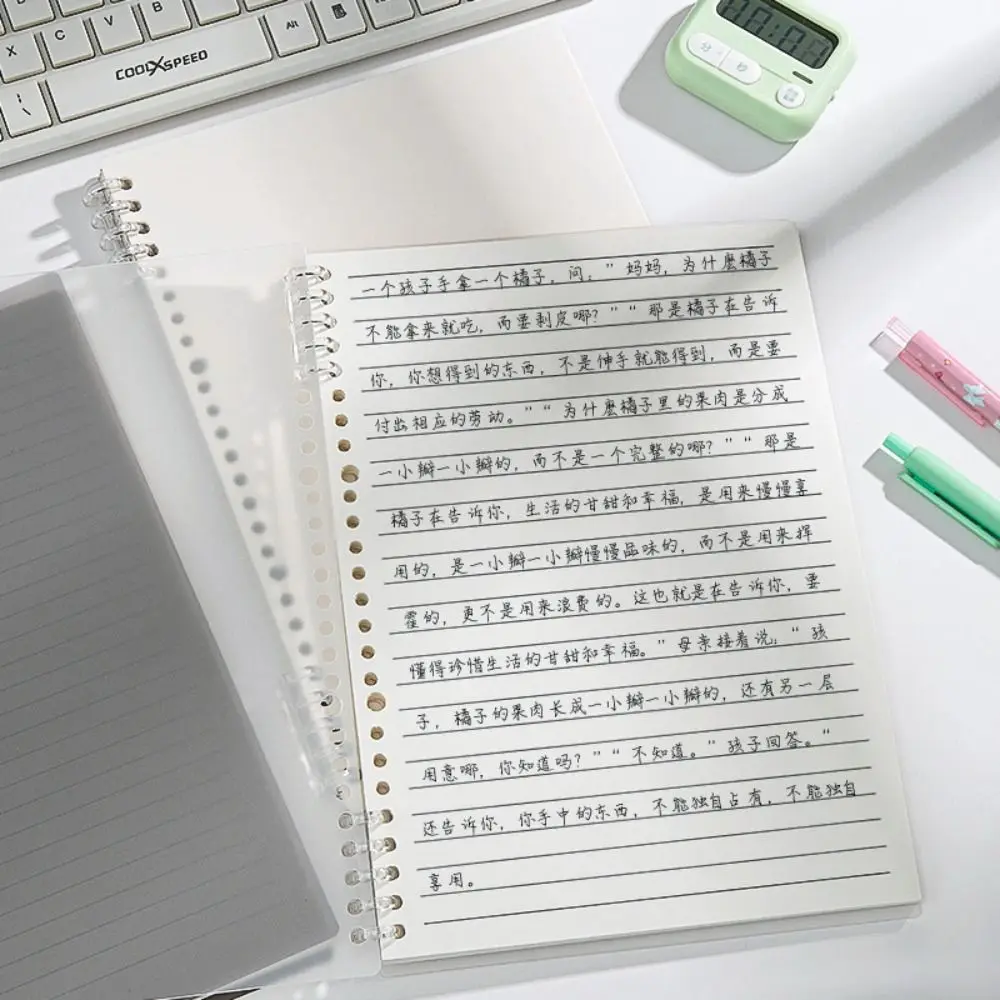 X
C
V
Alt
COOLXSPEED
分
秒
一个孩子手拿一个橘子,问:"妈妈,为什麽橘子
不能拿来就吃,而要剥皮哪?""那是橘子在告诉
你,你想得到的东西,不是伸手就能得到,而是要
付出相应的劳动。""为什麽橘子里的果肉是分成
一小瓣一小瓣的,而不是一个完整的哪?""那是
橘子在告诉你,生活的甘甜和幸福,是用来慢慢享
用的,是一小瓣一小瓣慢慢品味的,而不是用来挥
霍的,更不是用来浪费的。这也就是在告诉你,要
懂得珍惜生活的甘甜和幸福。"母亲接着说:"孩
子,橘子的果肉长成一小瓣一小瓣的,还有另一层
用意哪,你知道吗?""不知道。"孩子回答。"
还告诉你,你手中的东西,不能独自占有,不能独自
享用。